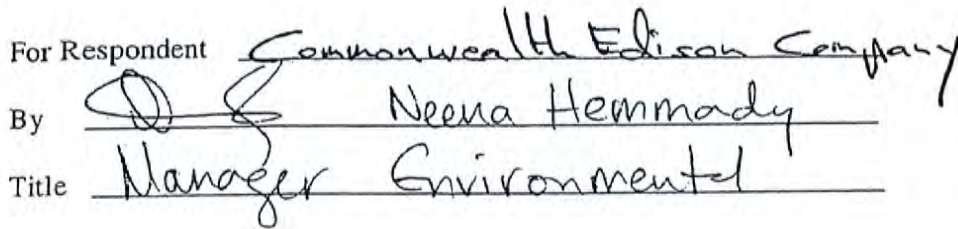 For Respondent Commonwealth Edison Company
By Neena Hemmady
Title Manager Environmental